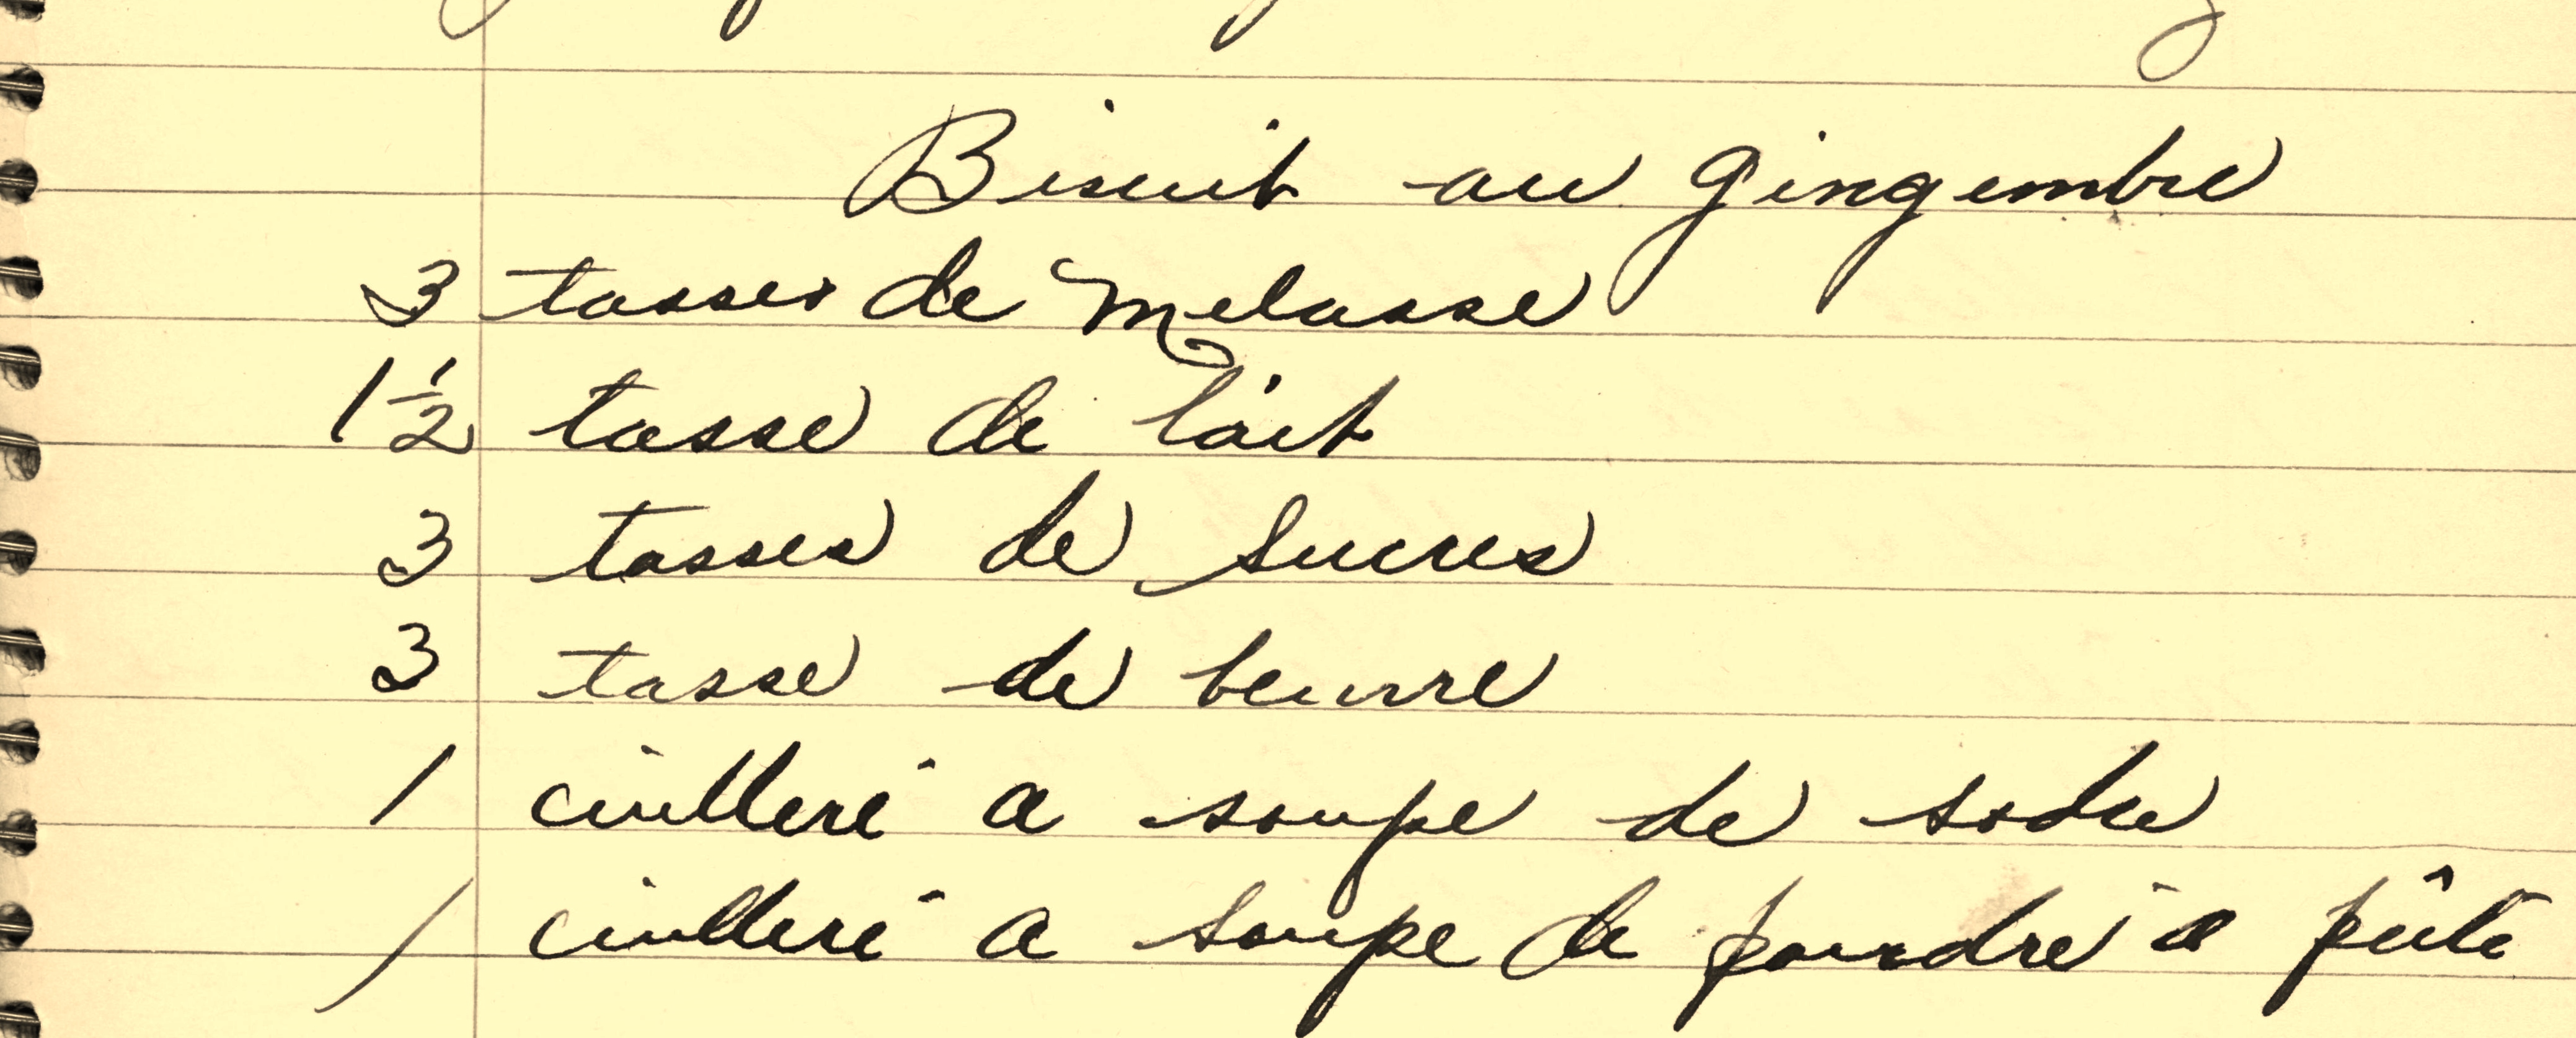 Biscuit au gingembre
3 tasses de Melasse
1 1/2 tasse de lait
3 tasses de sucres
3 tasse de beurre
1 cuilleré a soupe de soda
1 cuilleré a soupe de poudre à pâte